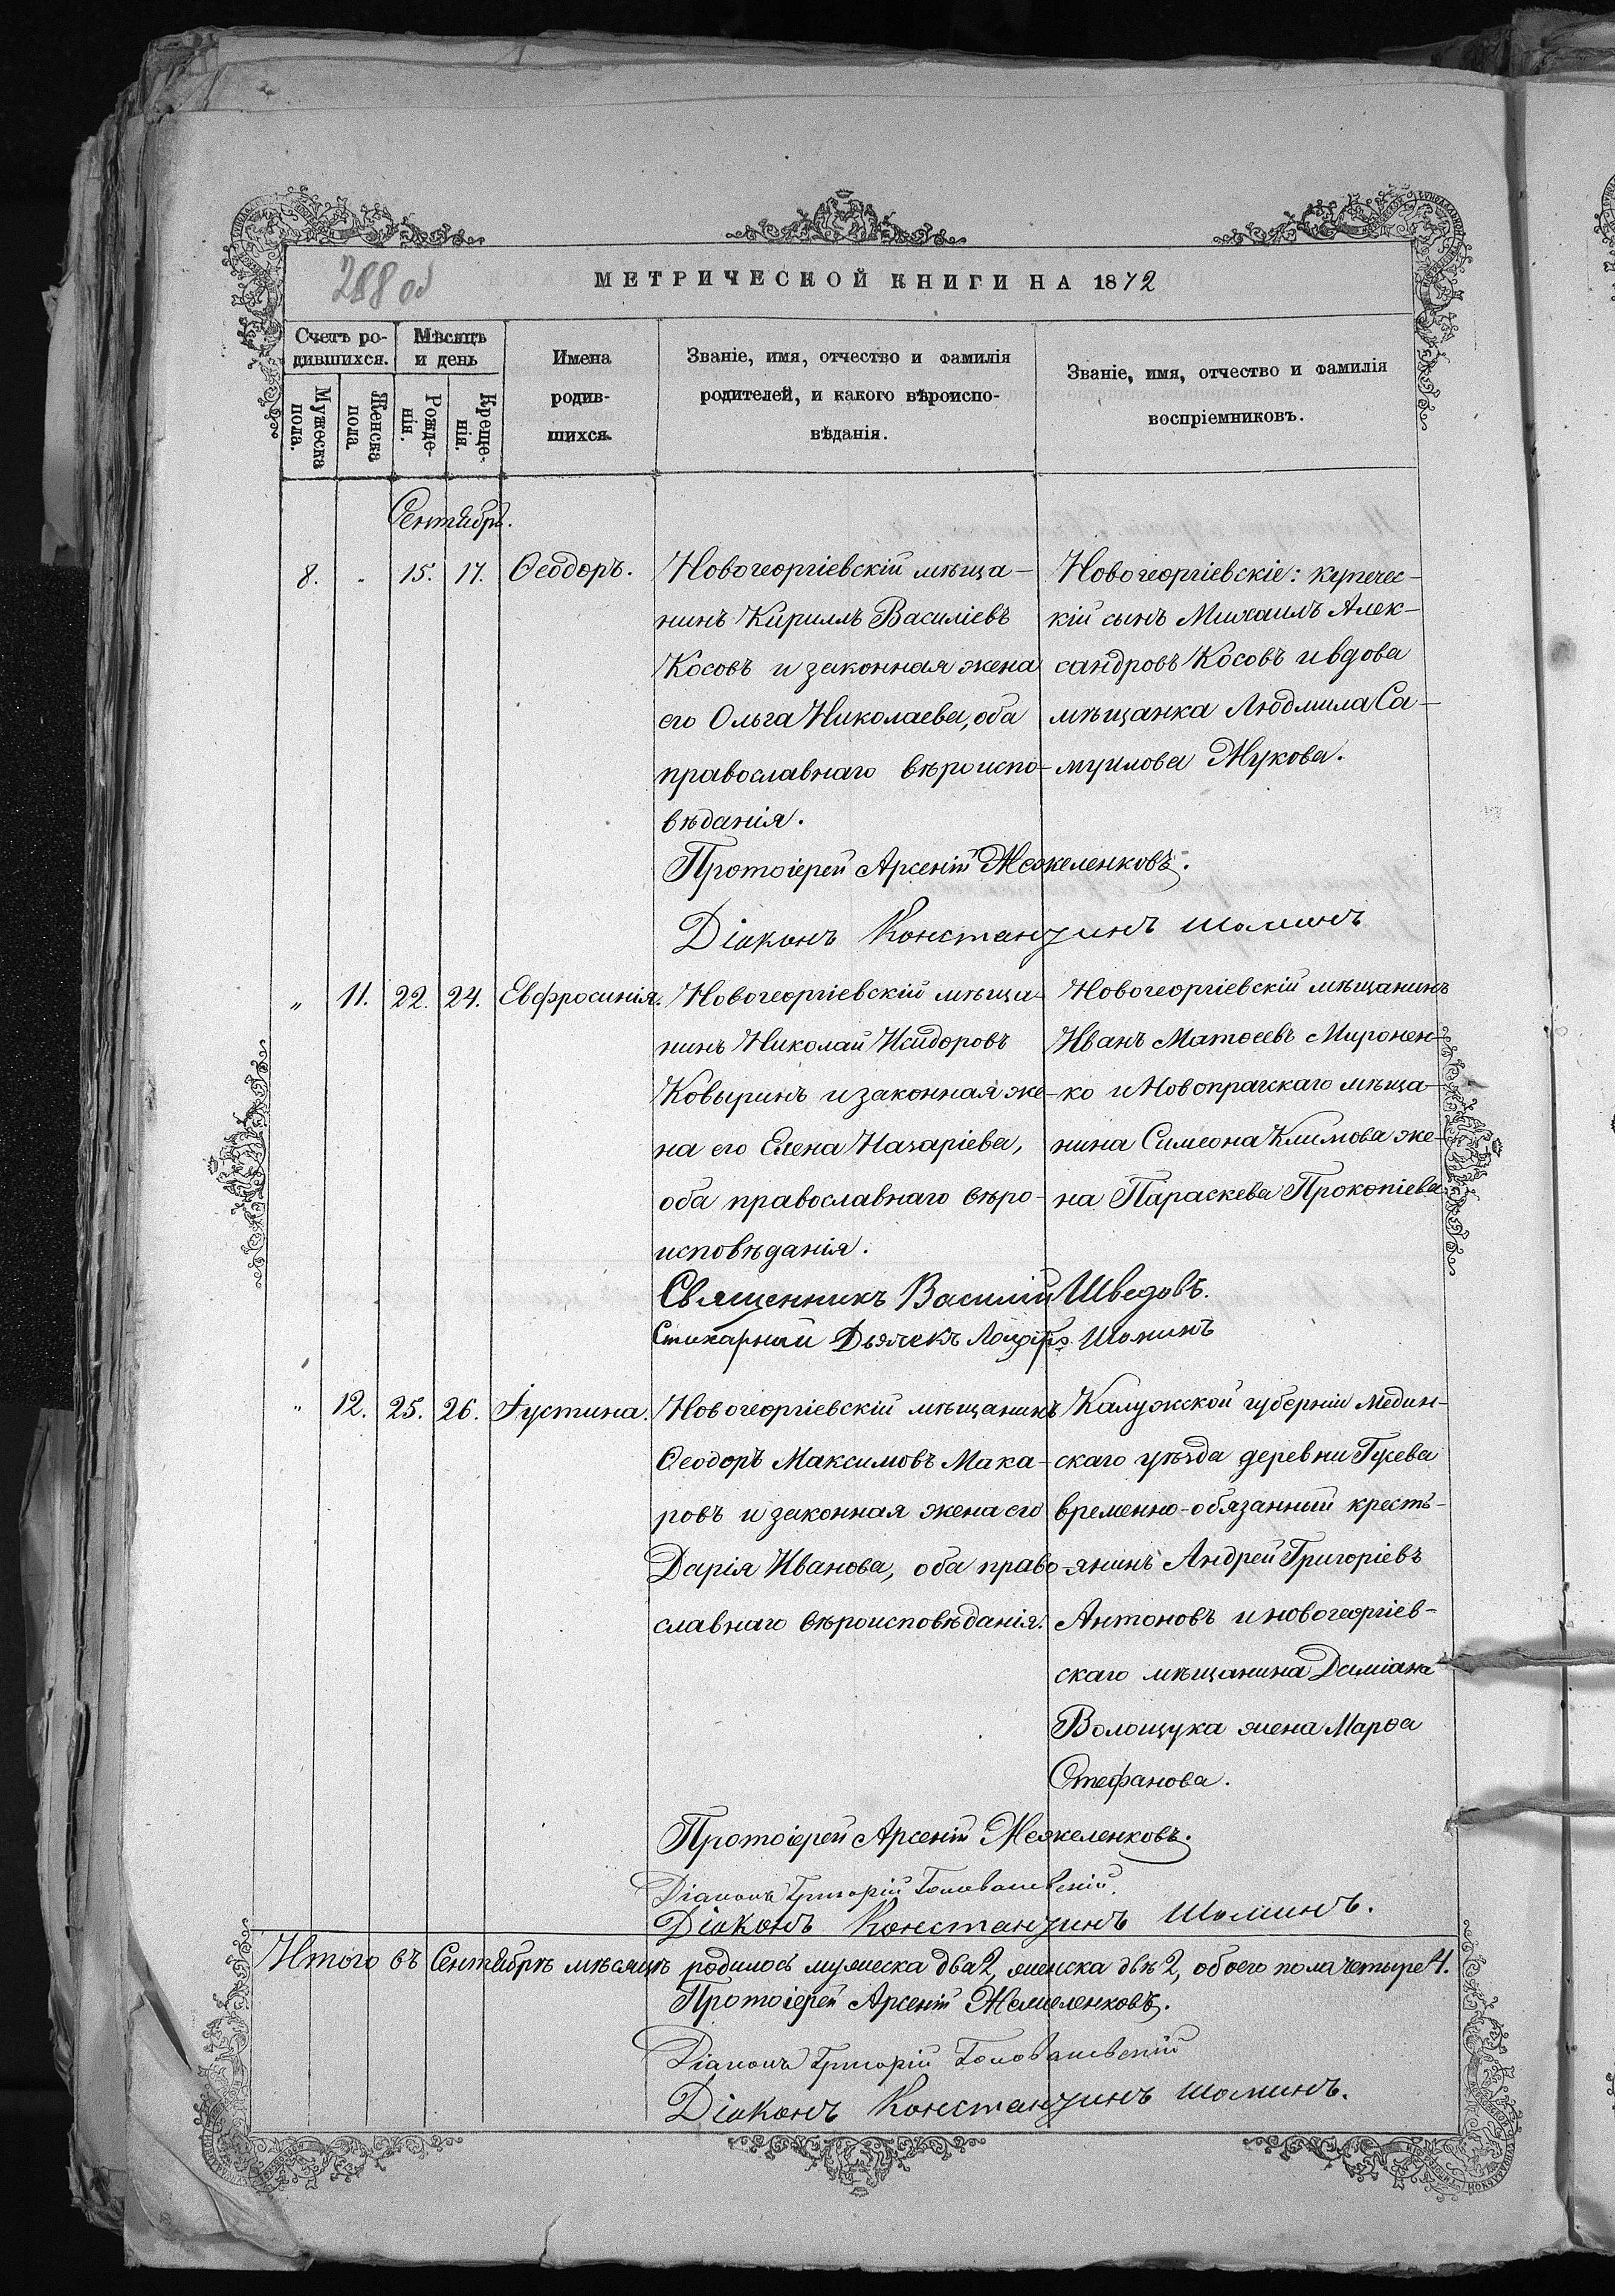 288 об
МЕТРИЧЕСКОЙ КНИГИ НА 1872
Счетъ ро-
дившихся.
Мужеска
пола.
Женска
пола.
Мѣсяцъ
и день
Рожде-
нія.
Креще-
нія.
Имена
родив-
шихся.
Званіе, имя, отчество и фамилія
родителей, и какого вѣроиспо-
вѣданія.
Званіе, имя, отчество и фамилія
воспріемниковъ.
Сентябрь.
8. " 15. 17. Ѳеодоръ.
Новогеоргіевскій мѣща-
нинъ Кириллъ Василіевъ
Косовъ и законная жена
его Ольга Николаева, оба
православнаго вѣроиспо-
вѣданія.
Новогеоргіевскіе: купечес-
кій сынъ Михаилъ Алек-
сандровъ Косовъ и вдова
мѣщанка Людмила Са-
муилова Жукова.
Протоіерей Арсеній Жежеленковъ.
Діаконъ Константинъ Шоминъ
" 11. 22. 24. Евфросинія.
Новогеоргіевскій мѣща-
нинъ Николай Исидоровъ
Ковыринъ и законная же-
на его Елена Назаріева,
оба православнаго вѣро-
исповѣданія.
Новогеоргіевскій мѣщанинъ
Иванъ Матѳеевъ Миронен-
ко и Новопрагскаго мѣща-
нина Симеона Климова же-
на Параскева Прокопіева.
Священникъ Василій Шведовъ.
Стихарный Дьячекъ Шоминъ
" 12. 25. 26. Іустина.
Новогеоргіевскій мѣщанинъ
Ѳеодоръ Максимовъ Мака-
ровъ и законная жена его
Дарія Иванова, оба право-
славнаго вѣроисповѣданія.
Калужской губерніи Медин-
скаго уѣзда деревни Гусева
временно-обязанный кресть-
янинъ Андрей Григоріевъ
Антоновъ и новогеоргіев-
скаго мѣщанина Даміана
Волощука жена Марѳа
Стефанова.
Протоіерей Арсеній Жежеленковъ.
Діаконъ Григорій
Діаконъ Константинъ Шоминъ.
Итого въ Сентябрѣ мѣсяцѣ родилось мужеска два 2, женска двѣ 2, обоего пола четыре 4.
Протоіерей Арсеній Жежеленковъ.
Діаконъ Григорій
Діаконъ Константинъ Шоминъ.